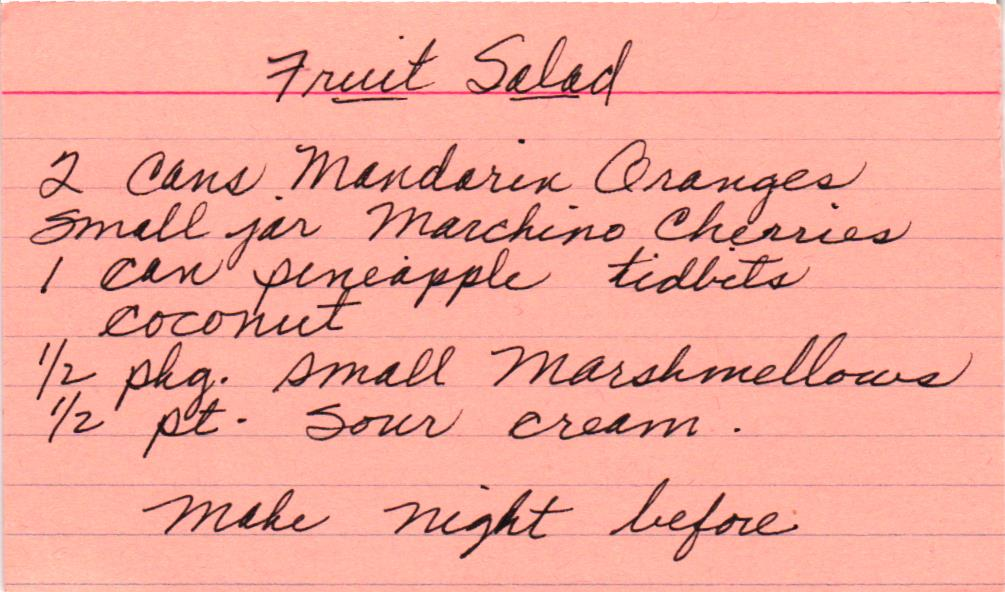 Fruit Salad
2 cans Mandarin Oranges
small jar Marchino Cherries
1 can pineapple tidbits
coconut
1/2 pkg. small Marshmellows
1/2 pt. Sour cream.
make night before